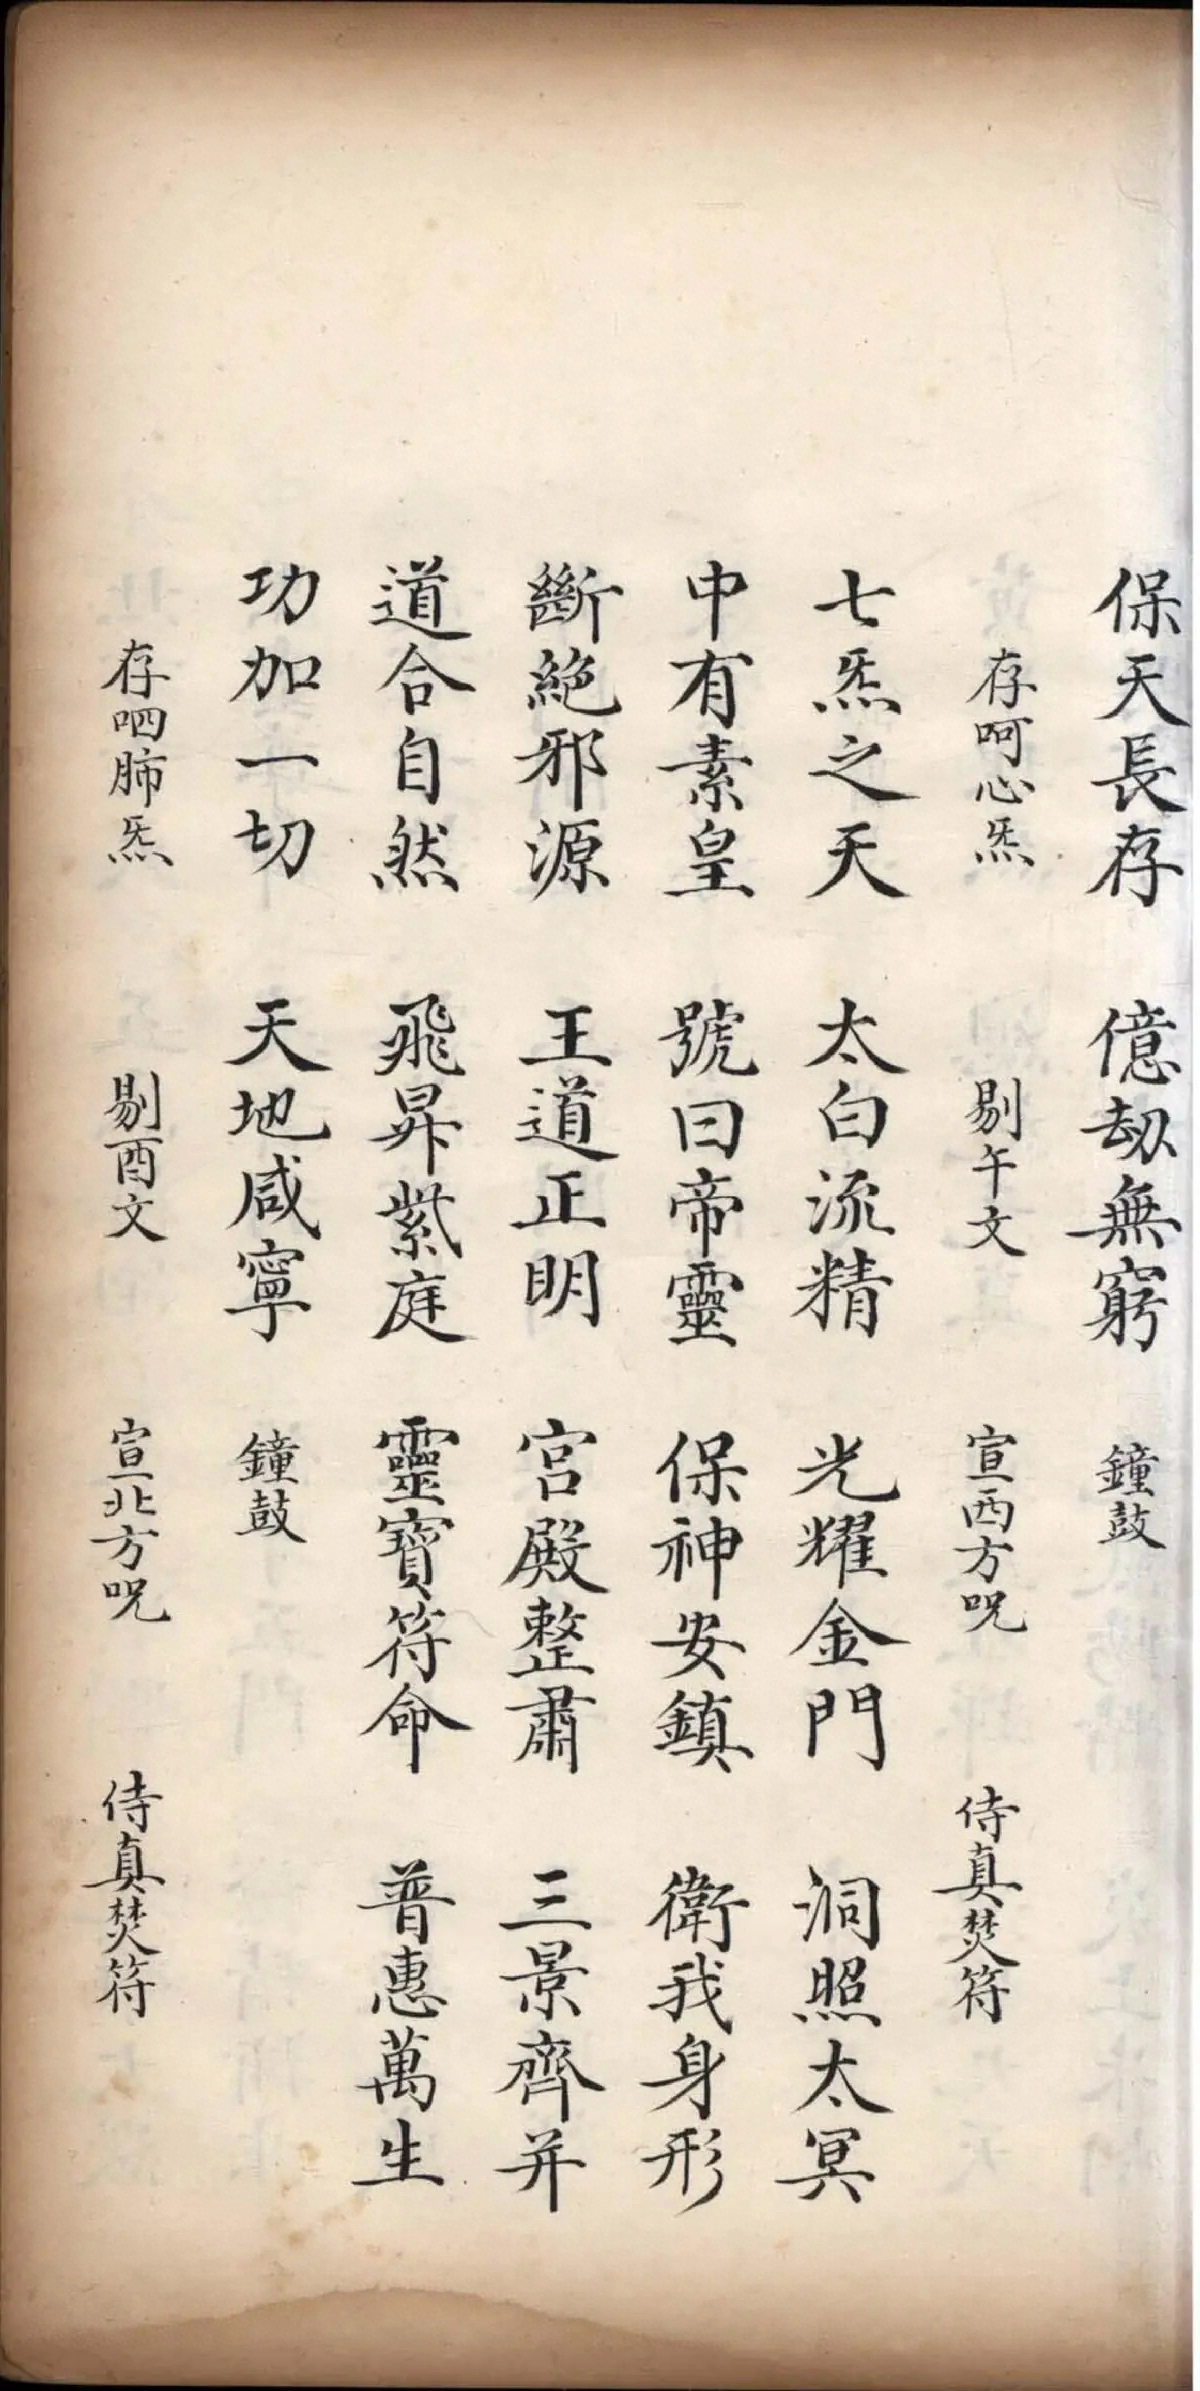 保天長存　億劫無窮　鐘鼓
存呵心炁　剔午文　宣西方呪　侍真焚符
七炁之天　太白流精　光耀金門　洞照太冥
中有素皇　號曰帝靈　保神安鎮　衛我身形
斷絕邪源　王道正明　宮殿整肅　三景齊并
道合自然　飛昇紫庭　靈寶符命　普惠萬生
功加一切　天地咸寧　鐘鼓
存呬肺炁　剔酉文　宣北方呪　侍真焚符